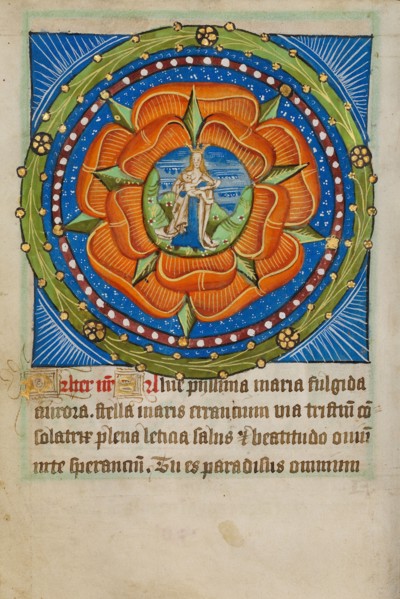 Aue piissima maria fulgida
aurora. stella maris errancium via tristiū cō
solatrix plena leticia salus & beatitudo oīnū
inte speranciū. Tu es paradisus omnium